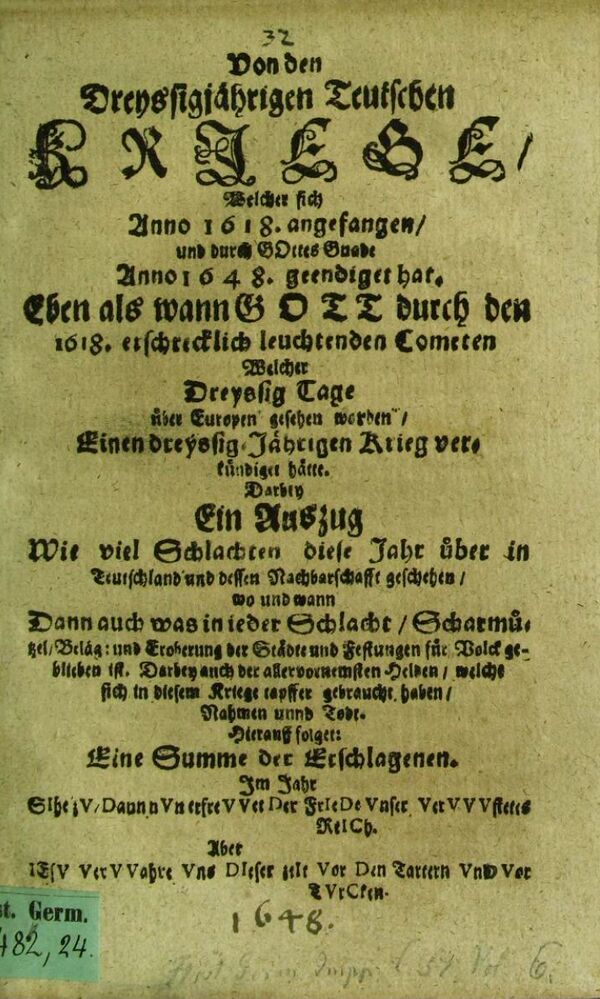 32
Von den
Dreyssigjährigen Teutschen
KRIEGE/
Welcher sich
Anno 1618. angefangen/
und durch GOttes Gnade
Anno 1648. geendiget hat.
Eben als wann GOTT durch den
1618. erschrecklich leuchtenden Cometen
Welcher
Dreyssig Tage
über Europen gesehen worden/
Einen dreyssig-Jährigen Krieg ver-
kündiget hätte.
Darbey
Ein Auszug
Wie viel Schlachten diese Jahr über in
Teutschland und dessen Nachbarschafft geschehen/
wo und wann
Dann auch was in ieder Schlacht/ Scharmü-
tzel/ Beläg: und Eroberung der Städte und Festungen für Volck ge-
blieben ist. Darbey auch der allervornemsten Helden/ welche
sich in diesem Kriege tapffer gebraucht haben/
Nahmen unnd Tode.
Hierauff folget:
Eine Summe der Erschlagenen.
Im Jahr
Der FrIeDe Vnser VerVVVstetes
ReICh.
Aber
VerVVahre Vns DIeser Vor Den Tartern VnD Vor
TVrCken.
1648.
st. Germ.
482, 24.
6.